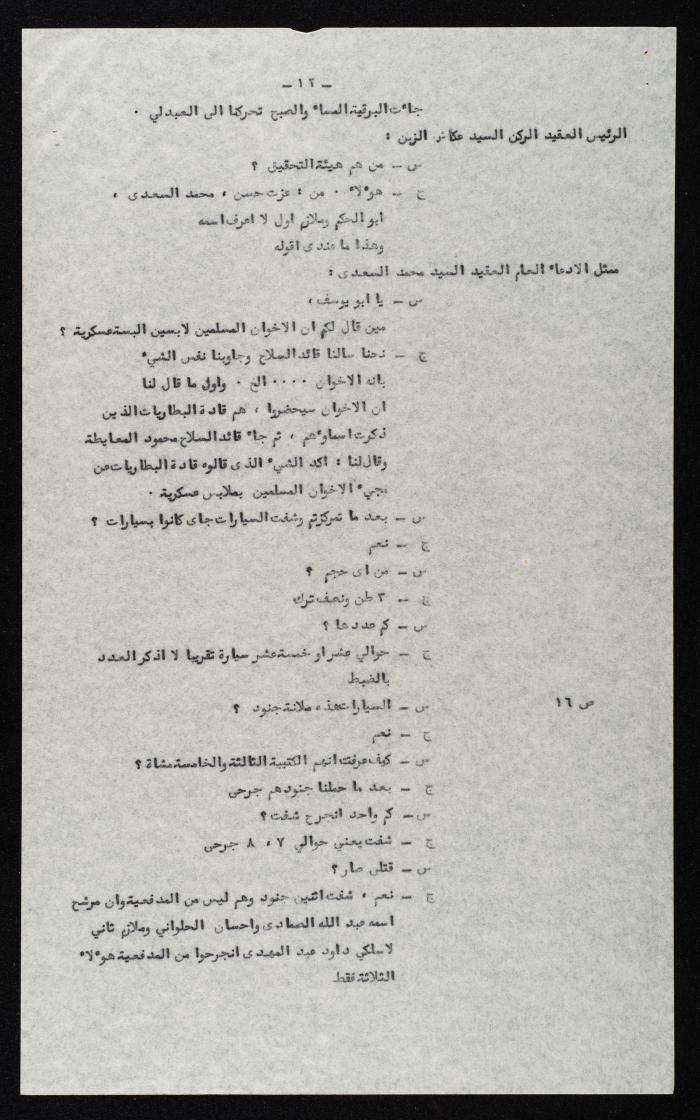 - ١٢ -
جاءت البرقية المساء والصبح تحركنا الى العبدلي .
الرئيس العقيد الركن السيد عكاش الزبن :
س - من هم هيئة التحقيق ؟
ج - هؤلاء . من : عزت حسن ، محمد السعدى ،
ابو الحكم وملازم اول لا اعرف اسمه
وهذا ما عندى اقوله
ممثل الادعاء العام العقيد السيد محمد السعدى :
س - يا ابو يوسف ،
مين قال لكم ان الاخوان المسلمين لابسين البسة عسكرية ؟
ج - نحنا سالنا قائد السلاح وجاوبنا نفس الشيء
بانه الاخوان .... الخ . واول ما قال لنا
ان الاخوان سيحضروا ، هم قادة البطاريات الذين
ذكرت اسماؤهم ، ثم جاء قائد السلاح محمود المعايطة
وقال لنا : اكد الشيء الذى قالوه قادة البطاريات عن
مجيء الاخوان المسلمين بملابس عسكرية .
س - بعد ما تمركزتم وشفت السيارات جاى كانوا بسيارات ؟
ج - نعم
س - من اى حجم ؟
ج - ٣ طن ونصف ترك
س - كم عددها ؟
ج - حوالي عشر او خمسة عشر سيارة تقريبا لا اذكر العدد
بالضبط
ص ١٦
س - السيارات هذه ملانة جنود ؟
ج - نعم
س - كيف عرفت انهم الكتيبة الثالثة والخامسة مشاة ؟
ج - بعد ما حملنا جنودهم جرحى
س - كم واحد انجرح شفت ؟
ج - شفت يعني حوالي ٧ ، ٨ جرحى
س - قتلى صار ؟
ج - نعم ، شفت اثنين جنود وهم ليس من المدفعية وان مرشح
اسمه عبد الله الصمادى واحسان الحلواني وملازم ثاني
لاسلكي داود عبد المهدى انجرحوا من المدفعية هؤلاء
الثلاثة فقط